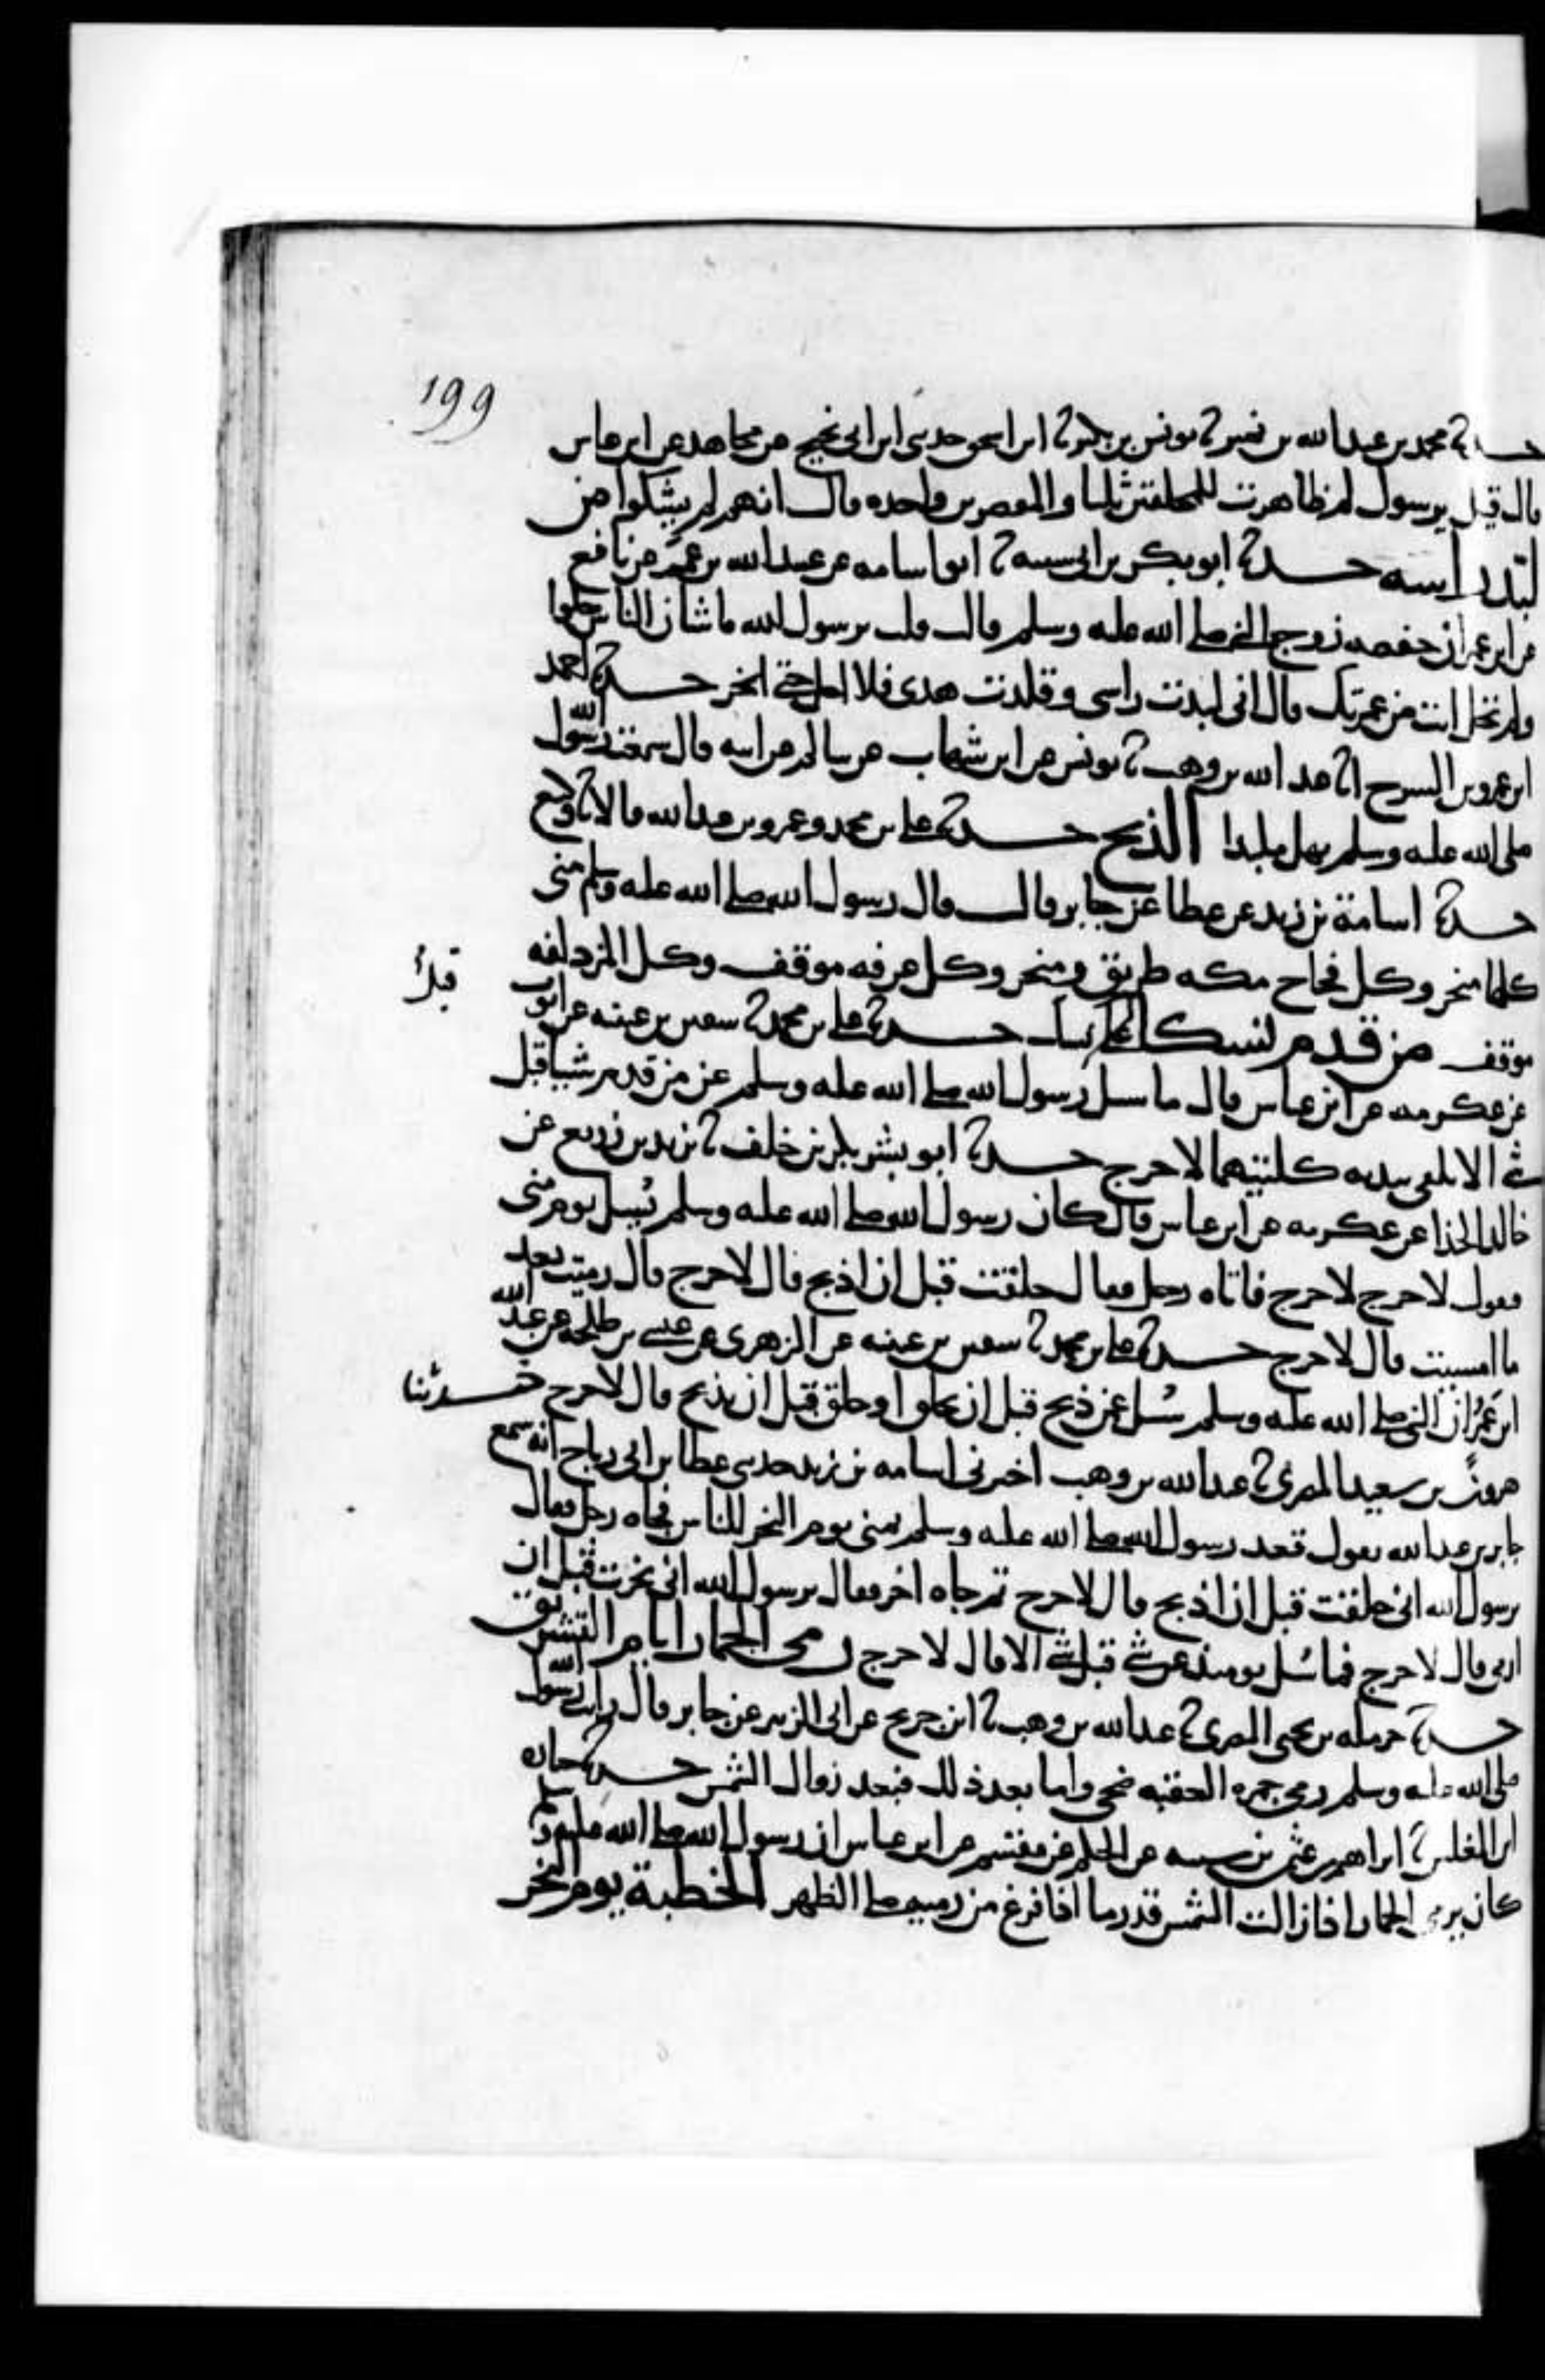 199
حدثنا محمد بن عبد الله بن نمير ثنا يونس بن بكير ثنا ابن اسحق حدثني ابن ابي نجيح عن مجاهد عن ابن عباس
قال قيل يرسول لم ظاهرت للمحلقين ثلثا والمقصرين واحده قال انهم لم يشكوا من
لبد راسه حدثنا ابو بكر بن ابي شيبه ثنا ابو اسامه عن عبيد الله بن عمر عن نافع
عن ابن عمر ان حفصه زوج النبي صلى الله عليه وسلم قالت قلت يرسول الله ما شان الناس حلوا
ولم تحل انت من عمرتك قال اني لبدت راسي وقلدت هدي فلا احل حتى انحر حدثنا احمد
ابن عمرو بن السرح انا عبد الله بن وهب ثنا يونس عن ابن شهاب عن سالم عن ابيه قال سمعت رسول الله
صلى الله عليه وسلم يهل ملبدا الذبح حدثنا علي بن محمد وعمرو بن عبد الله قالا ثنا وكيع
حدثنا اسامة بن زيد عن عطا عن جابر قال قال رسول الله صلى الله عليه وسلم منى
كلها منحر وكل فجاج مكه طريق ومنحر وكل عرفه موقف وكل المزدلفه
موقف من قدم نسكا قبل نسك حدثنا علي بن محمد ثنا سفين بن عيينه عن ايوب
عن عكرمه عن ابن عباس قال ما سئل رسول الله صلى الله عليه وسلم عن من قدم شيئا قبل
شي الا يلقي بيديه كلتيهما لا حرج حدثنا ابو بشر بكر بن خلف ثنا يزيد بن زريع عن
خالد الحذا عن عكرمه عن ابن عباس قال كان رسول الله صلى الله عليه وسلم يُسئل يوم منى
فيقول لا حرج لا حرج فاتاه رجل فقال حلقت قبل ان اذبح قال لا حرج قال رميت بعد
ما امسيت قال لا حرج حدثنا علي بن محمد ثنا سفين بن عيينه عن الزهري عن عيسى بن طلحه عن عبد الله
ابن عمر ان النبي صلى الله عليه وسلم سُئل عن ذبح قبل ان يحلق او حلق قبل ان يذبح قال لا حرج حدثنا
هرون بن سعيد المصري ثنا عبد الله بن وهب اخبرني اسامه بن زيد حدثني عطا بن ابي رباح انه سمع
جابر بن عبد الله يقول قعد رسول الله صلى الله عليه وسلم بمنى يوم النحر للناس فجاه رجل فقال
يرسول الله اني حلقت قبل ان اذبح قال لا حرج ثم جاه اخر فقال يرسول الله اني نحرت قبل ان
ارمي قال لا حرج فما سُئل يومئذ عن شي قبل شي الا قال لا حرج رمي الجمار ايام التشريق
حدثنا حرمله بن يحيى المصري ثنا عبد الله بن وهب ثنا ابن جريج عن ابي الزبير عن جابر قال رايت رسول الله
صلى الله عليه وسلم رمى جمره العقبه ضحى واما بعد ذلك فبعد زوال الشمس حدثنا جباره
ابن المغلس ثنا ابراهيم بن عثمن بن شيبه عن الحكم عن مقسم عن ابن عباس ان رسول الله صلى الله عليه وسلم
كان يرمي الجمار اذا زالت الشمس قدر ما اذا فرغ من رميه صلى الظهر الخطبة يوم النحر